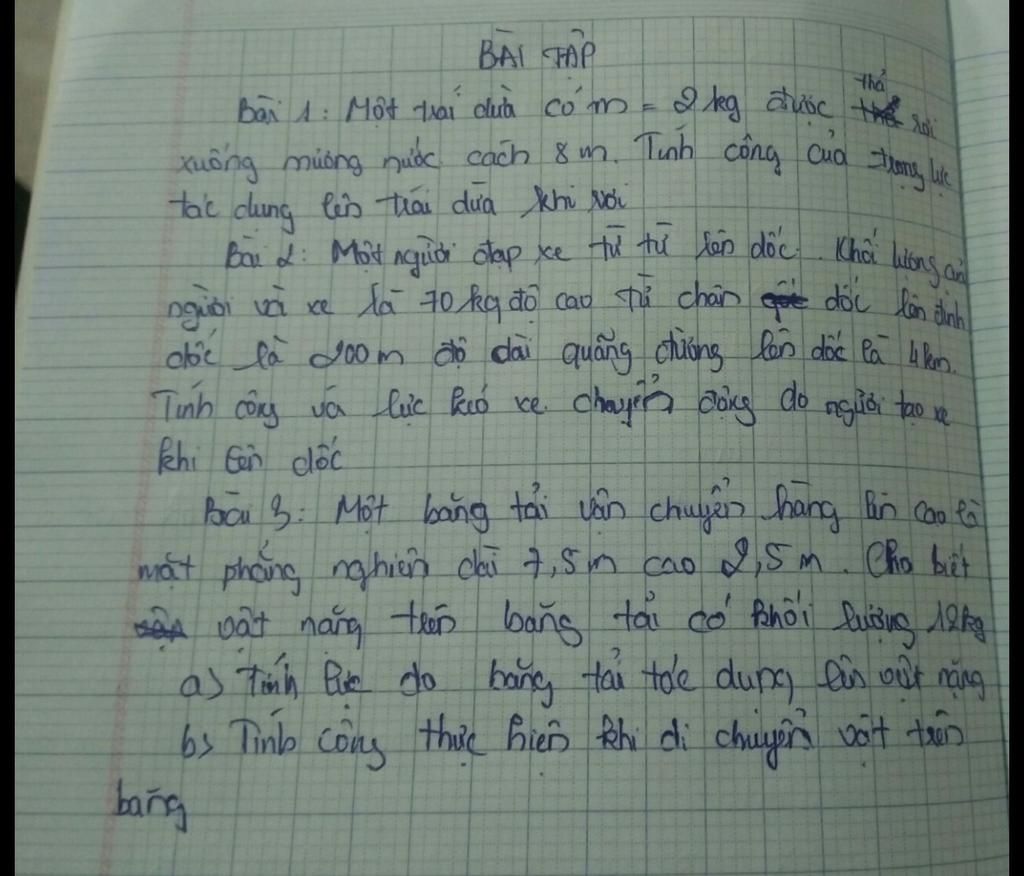 BÀI TẬP
Bài 1: Một trái dừa có m = 2 kg được thả rơi
xuống mương nước cách 8 m. Tính công của trọng lực
tác dụng lên trái dừa khi rơi
Bài 2: Một người đạp xe từ từ lên dốc. Khối lượng của
người và xe là 70 kg độ cao từ chân dốc lên đỉnh
dốc là 200 m độ dài quãng đường lên dốc là 4 km.
Tính công và lực kéo xe chuyển động do người tạo xe
khi lên dốc
Bài 3: Một băng tải vận chuyển hàng lên cao là
mặt phẳng nghiên dài 7,5 m cao 2,5 m. Cho biết
vật nặng trên băng tải có khối lượng 12 kg
a) Tính lực do băng tải tác dụng lên vật nặng
b) Tính công thực hiện khi di chuyển vật trên
băng